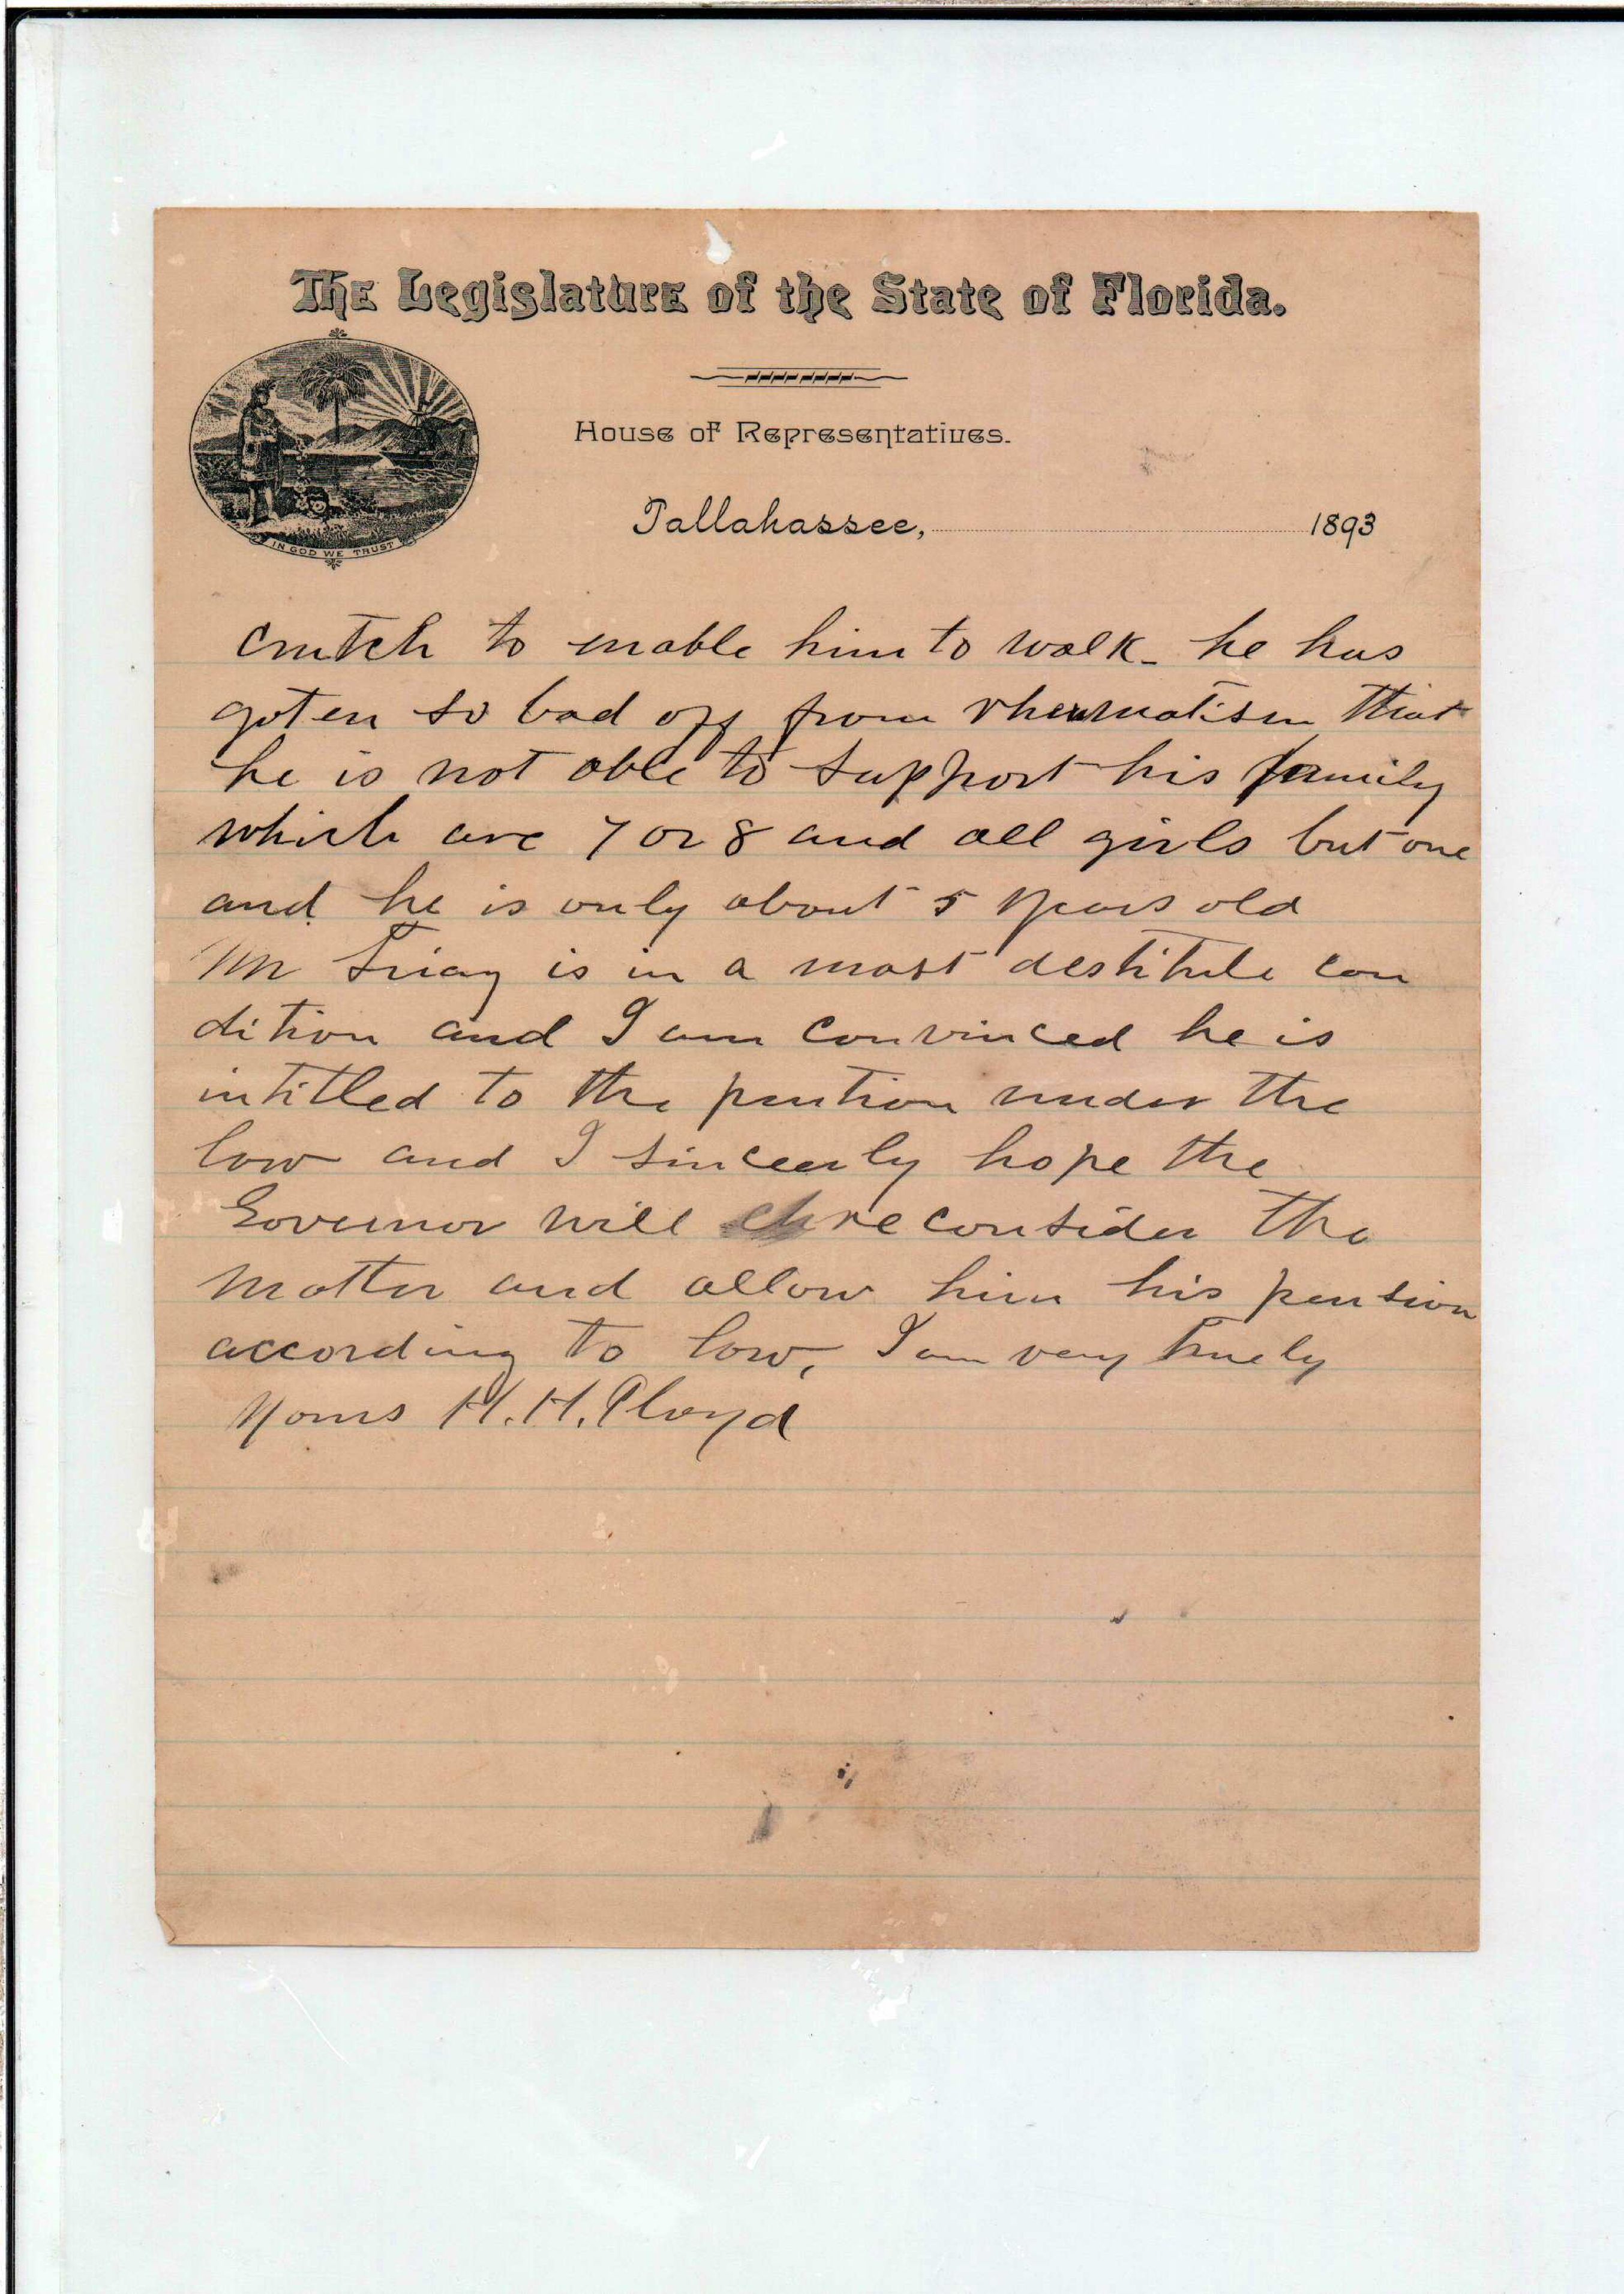 The Legislature of the State of Florida.
House of Representatives.
IN GOD WE TRUST
Tallahassee, 1893
crutch to enable him to walk - he has
goten so bad off from rheumatism that
he is not able to support his family
which are 7 or 8 and all girls but one
and he is only about 5 years old
Mr is in a most destitute con
dition and I am convinced he is
intitled to the pention under the
law and I sincerly hope the
Governor will reconsider the
matter and allow him his pension
according to law, I am very truely
yours H. H. Floyd